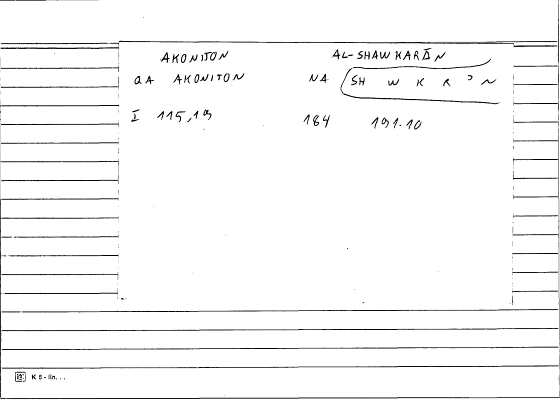 AKONITON AL-SHAWKARĀN
QA AKONITON NA SH W K R ᵓ N
I 115,19 184 191.10
K 5 - lin. . .